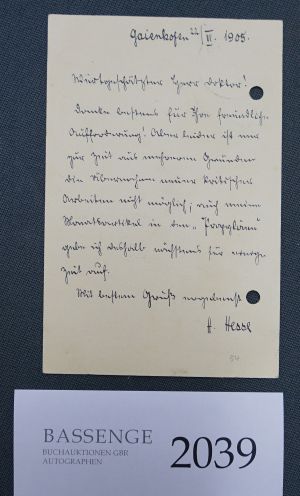 Gaienhofen 22/VI. 1905.
Wertgeschätzter Herr Doktor!
Danke bestens für Ihre freundliche
Aufforderung! Aber leider ist mir
zur Zeit aus mehreren Gründen
die Übernahme neuer kritischer
Arbeiten nicht möglich, auch meine
Monatsartikel in den „Propyläen"
gebe ich deshalb nächstens für einige
Zeit auf.
Mit bestem Gruß ergebenst
H. Hesse
54
BASSENGE
BUCHAUKTIONEN GBR
AUTOGRAPHEN
2039